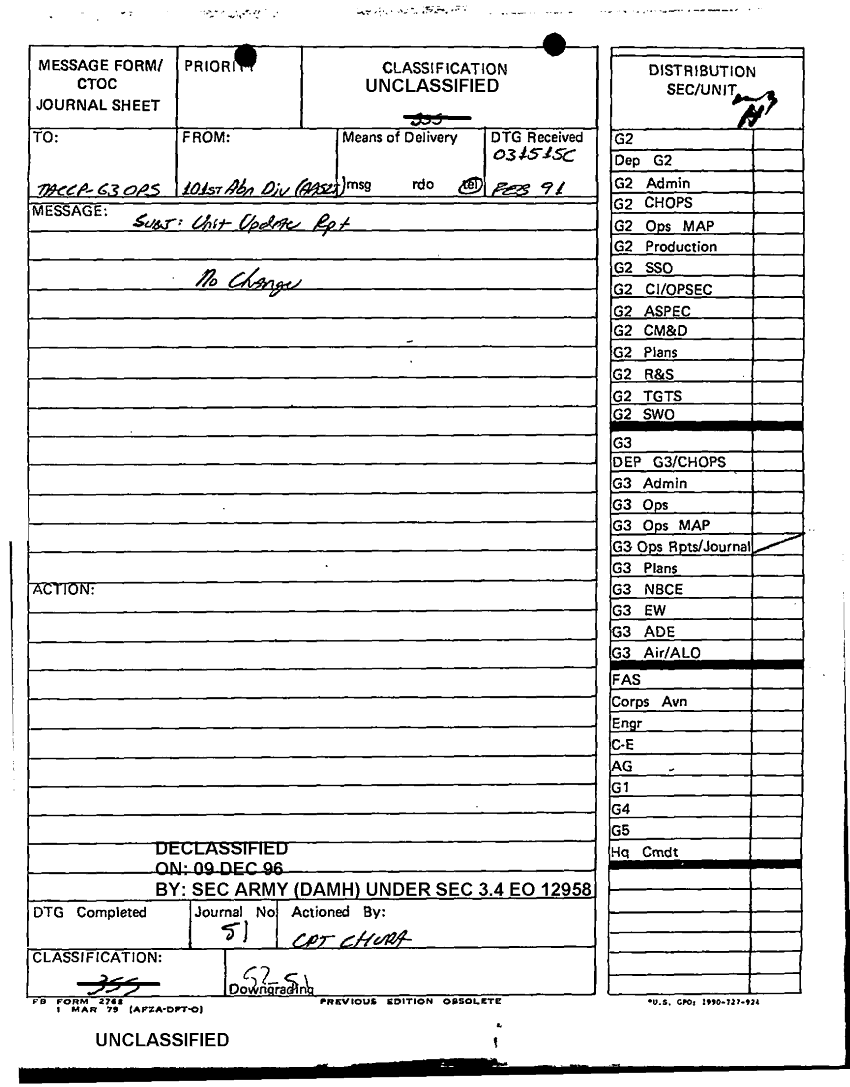 MESSAGE FORM/
CTOC
JOURNAL SHEET
PRIORITY
CLASSIFICATION
UNCLASSIFIED
TO:
TACCP-G3 OPS
FROM:
101st Abn Div (AASLT)
Means of Delivery
msg rdo tel
DTG Received
031515C
FEB 91
MESSAGE:
SUBJ: Unit Update Rpt
No Change
ACTION:
DECLASSIFIED
ON: 09 DEC 96
BY: SEC ARMY (DAMH) UNDER SEC 3.4 EO 12958
DTG Completed
Journal No
51
Actioned By:
CPT CHURA
CLASSIFICATION:
Downgrading
FB FORM 2768
1 MAR 79 (AFZA-DPT-O)
PREVIOUS EDITION OBSOLETE
UNCLASSIFIED
DISTRIBUTION
SEC/UNIT
G2
Dep G2
G2 Admin
G2 CHOPS
G2 Ops MAP
G2 Production
G2 SSO
G2 CI/OPSEC
G2 ASPEC
G2 CM&D
G2 Plans
G2 R&S
G2 TGTS
G2 SWO
G3
DEP G3/CHOPS
G3 Admin
G3 Ops
G3 Ops MAP
G3 Ops Rpts/Journal
G3 Plans
G3 NBCE
G3 EW
G3 ADE
G3 Air/ALO
FAS
Corps Avn
Engr
C-E
AG
G1
G4
G5
Hq Cmdt
*U.S. GPO: 1990-727-924